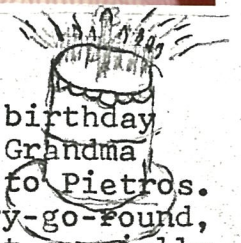 birthday
Grandma
to Pietros.
y-go-round,